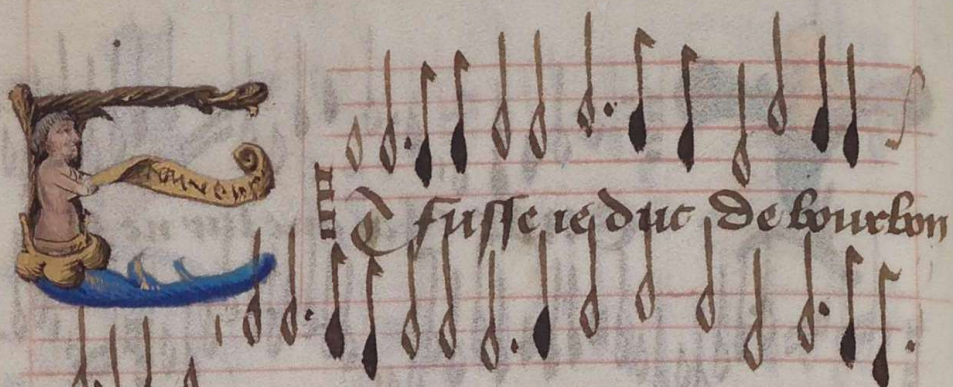 ET fusse ie duc de bourbon